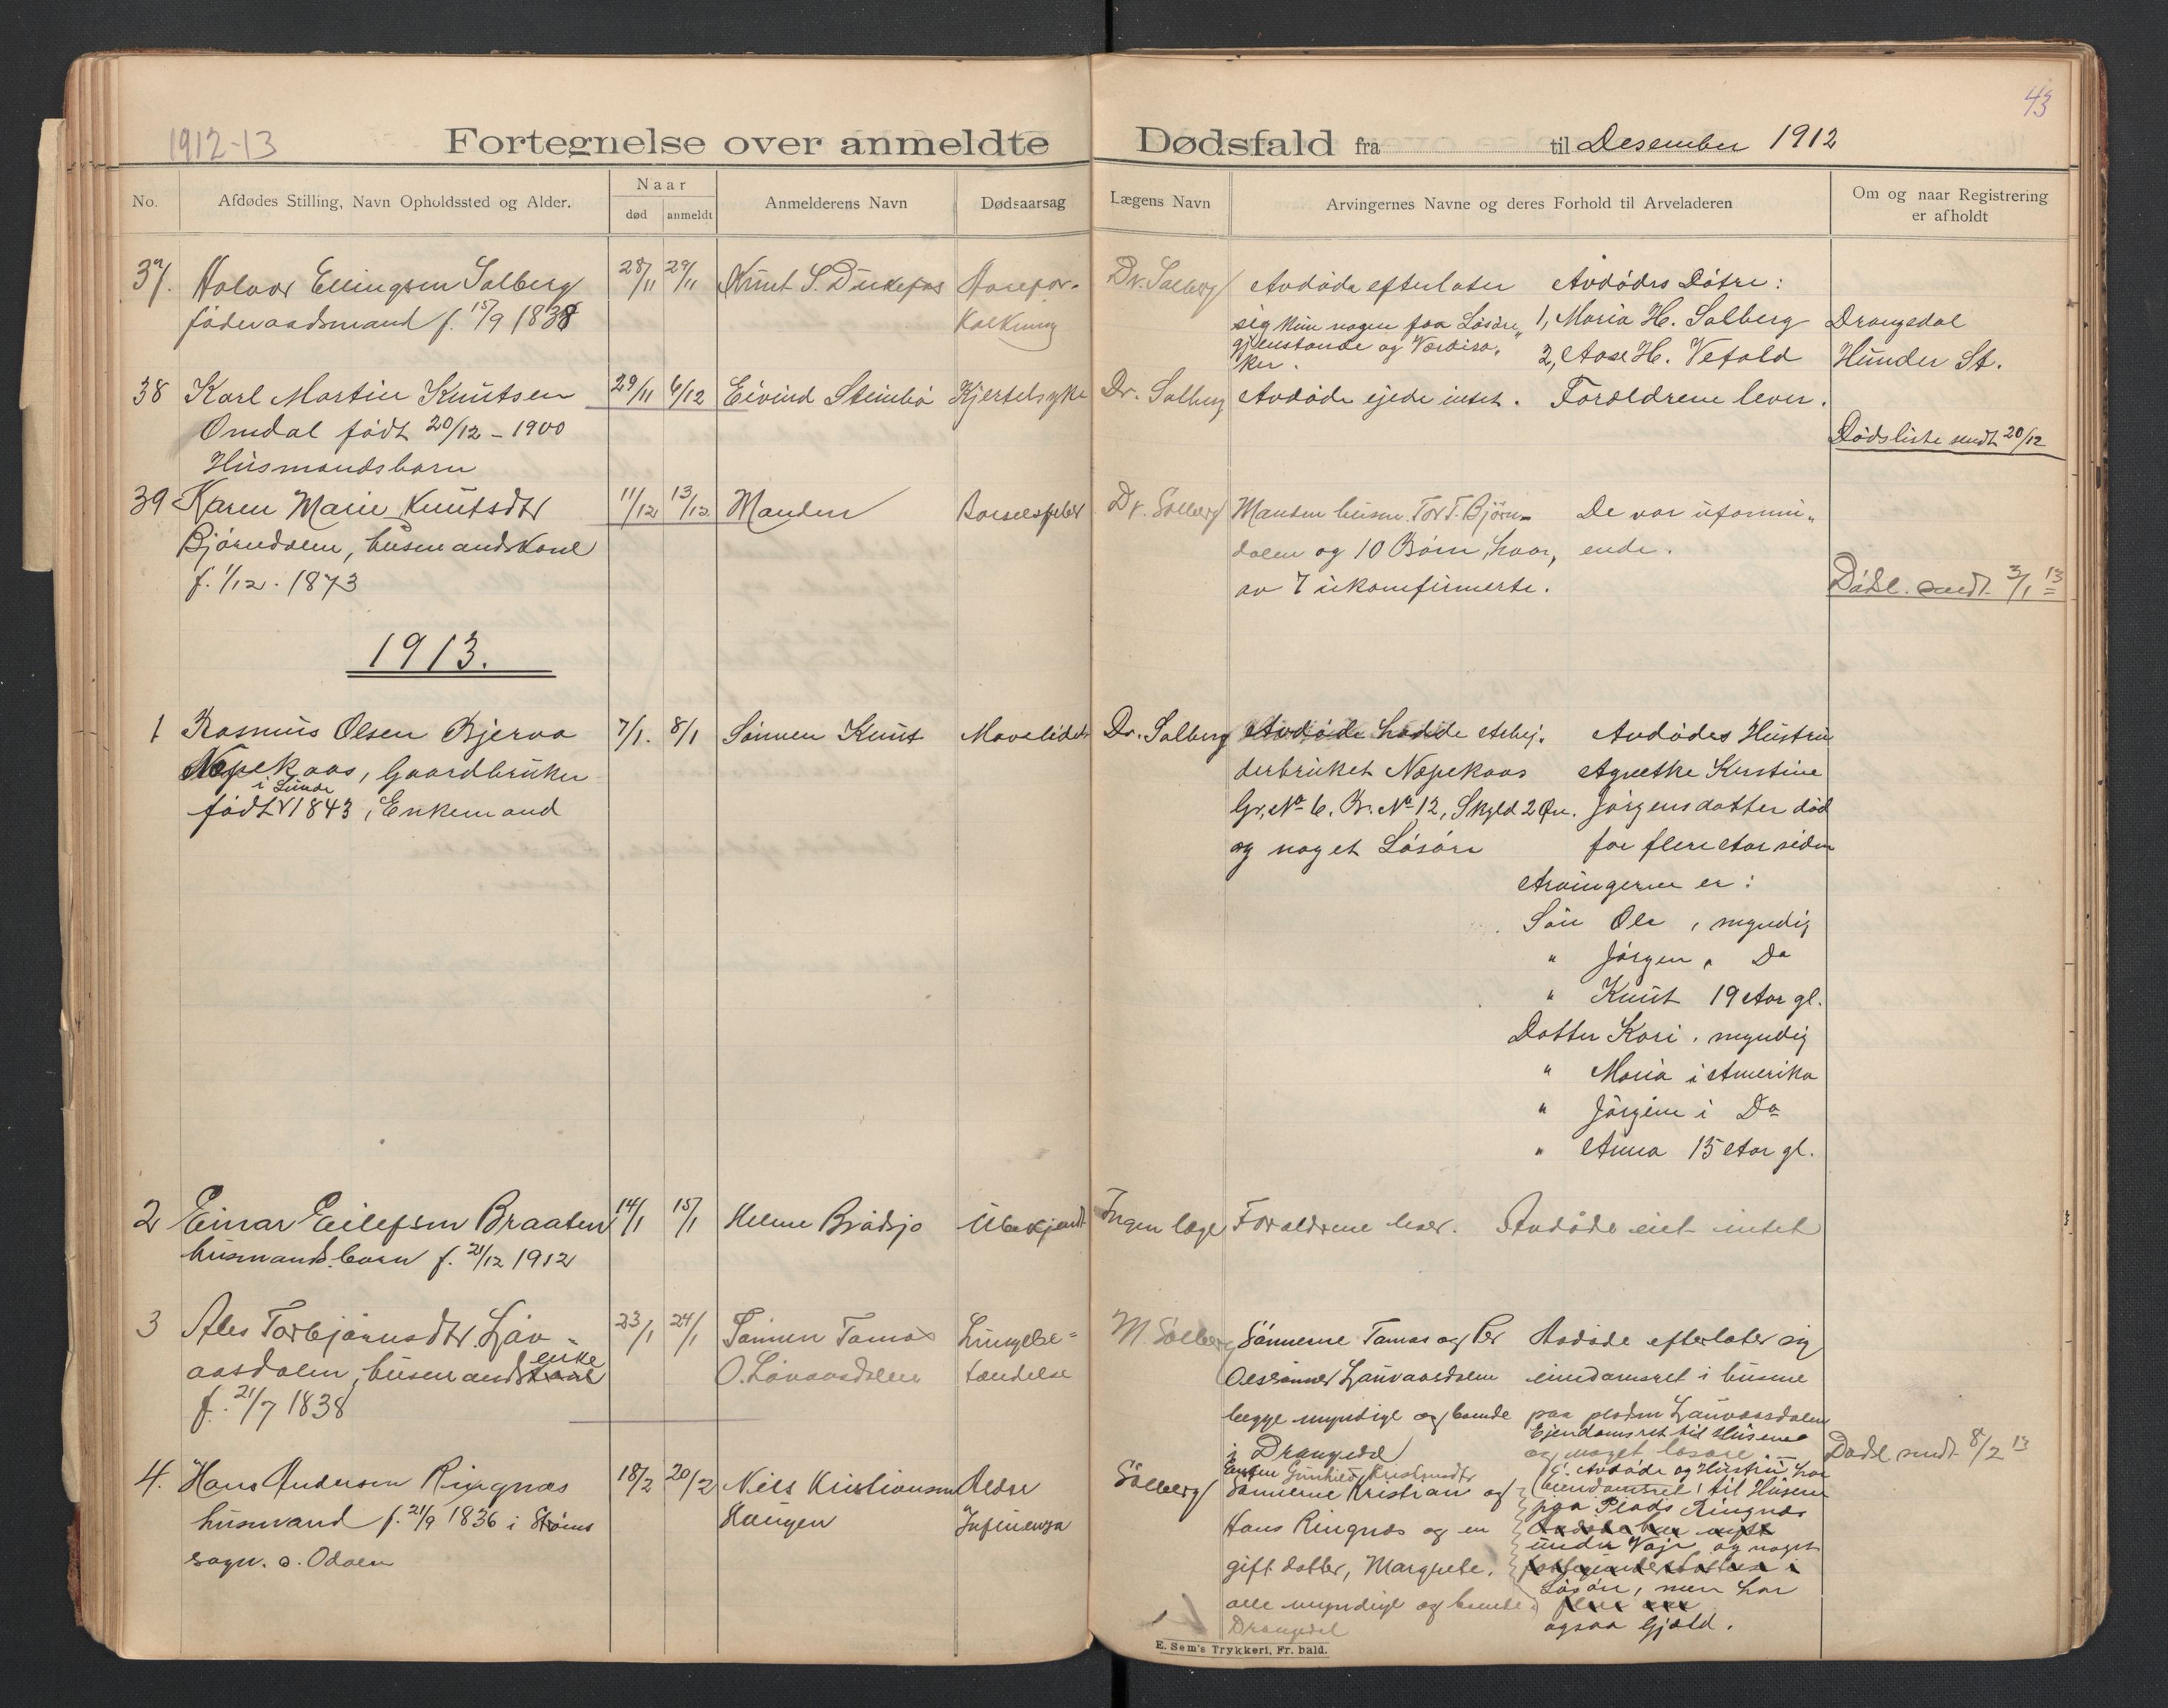 43
1912-13
Fortegnelse over anmeldte Dødsfald fra til Desember 1912
No.
Afdødes Stilling, Navn Opholdssted og Alder.
Naar
død
anmeldt
Anmelderens Navn
Dødsaarsag
Lægens Navn
Arvingernes Navne og deres Forhold til Arveladeren
Om og naar Registrering
er afholdt
37. Halvor Ellingsen Solberg
føderaadsmand f. 15/9 1838
28/11 29/11
Knut S.
Aarefor-
kalkning
Dr. Solberg
Avdøde efterlater
sig kun nogen faa Løsøre
gjenstande og Værdisa-
ker.
Avdødes Døtre:
1, Maria H. Solberg
2, Aase H. Vefald
Drangedal
Hunder St.
38 Karl Martin Knutsen
Omdal født 20/12 - 1900
Husmandsbarn
29/11 6/12
Eivind Stenbø
Kjertelsyke
Dr. Solberg
Avdøde ejede intet. Forældrene lever.
Dødsliste sendt 20/12
39 Karen Marie Knutsdtr
Bjørndalen, husmandskone
f. 1/12. 1873
11/12 13/12
Manden
Barselfeber
Dr. Solberg
Manden husm. Tor T. Bjørn-
dalen og 10 Børn, hvor,
av 7 ukonfirmerte.
De var uformu-
ende.
Dødsl. sendt 3/1 13
1913.
1 Rasmus Olsen Bjerva
Næpekaas, Gaardbruker
i Lunde
født 1843, Enkemand
7/1. 8/1
Sønnen Knut
Mavelidelse
Dr. Solberg
Avdøde hadde Arbej-
derbruket Næpekaas
Gr. No 6. Br. No 12, Skyld 2 Øre.
og noget Løsøre
Avdødes Hustru
Agnethe Kirstine
Jørgensdatter død
for flere Aar siden
Arvingerne er:
Søn Ole, myndig
" Jørgen, Do
" Knut 19 Aar gl.
Datter Kari, myndig
" Maria i Amerika
" Jørgine i Do
" Anna 15 Aar gl.
2 Einar Eilefsen Braaten
husmands barn f. 21/12 1912
14/1 15/1
Helene Brødsjø
Ubekjendt
Ingen læge
Forældrene lever. Avdøde eiet intet
3 Ales Torbjørnsdtr. Løv-
aasdalen, husmandsenke
f. 21/7 1838
23/1 24/1
Sønnen Tomas
O. Løvaasdalen
Lungebe-
tændelse
M. Solberg
Sønnerne Tomas og Per
Olessønner Lauvaasdalen
begge myndige og boende
i Drangedal
Avdøde efterlater sig
eiendomsret i husene
paa pladsen Lauvaasdalen
og noget løsøre.
Dødl. sendt 8/2 13
4. Hans Anderson Ringnæs
husmand f. 21/9 1836 i Strøms
sogn. s. Odalen
18/2 20/2
Nils Kristiansen
Haugen
Ældre
Infiuenza
Solberg
Enken Gunhild Kristensdtr
Sønnerne Kristian og
Hans Ringnæs og en
gift datter, Margrete,
alle myndige og boende i
Drangedal
Ejendomsret til Husene
Avdøde og Hustru har
Eiendomsret til Husene
paa Plads Ringnæs
under Voje og noget
Løsøre, men har
ogsaa Gjæld.
E. Sem's Trykkeri, Fr. hald.